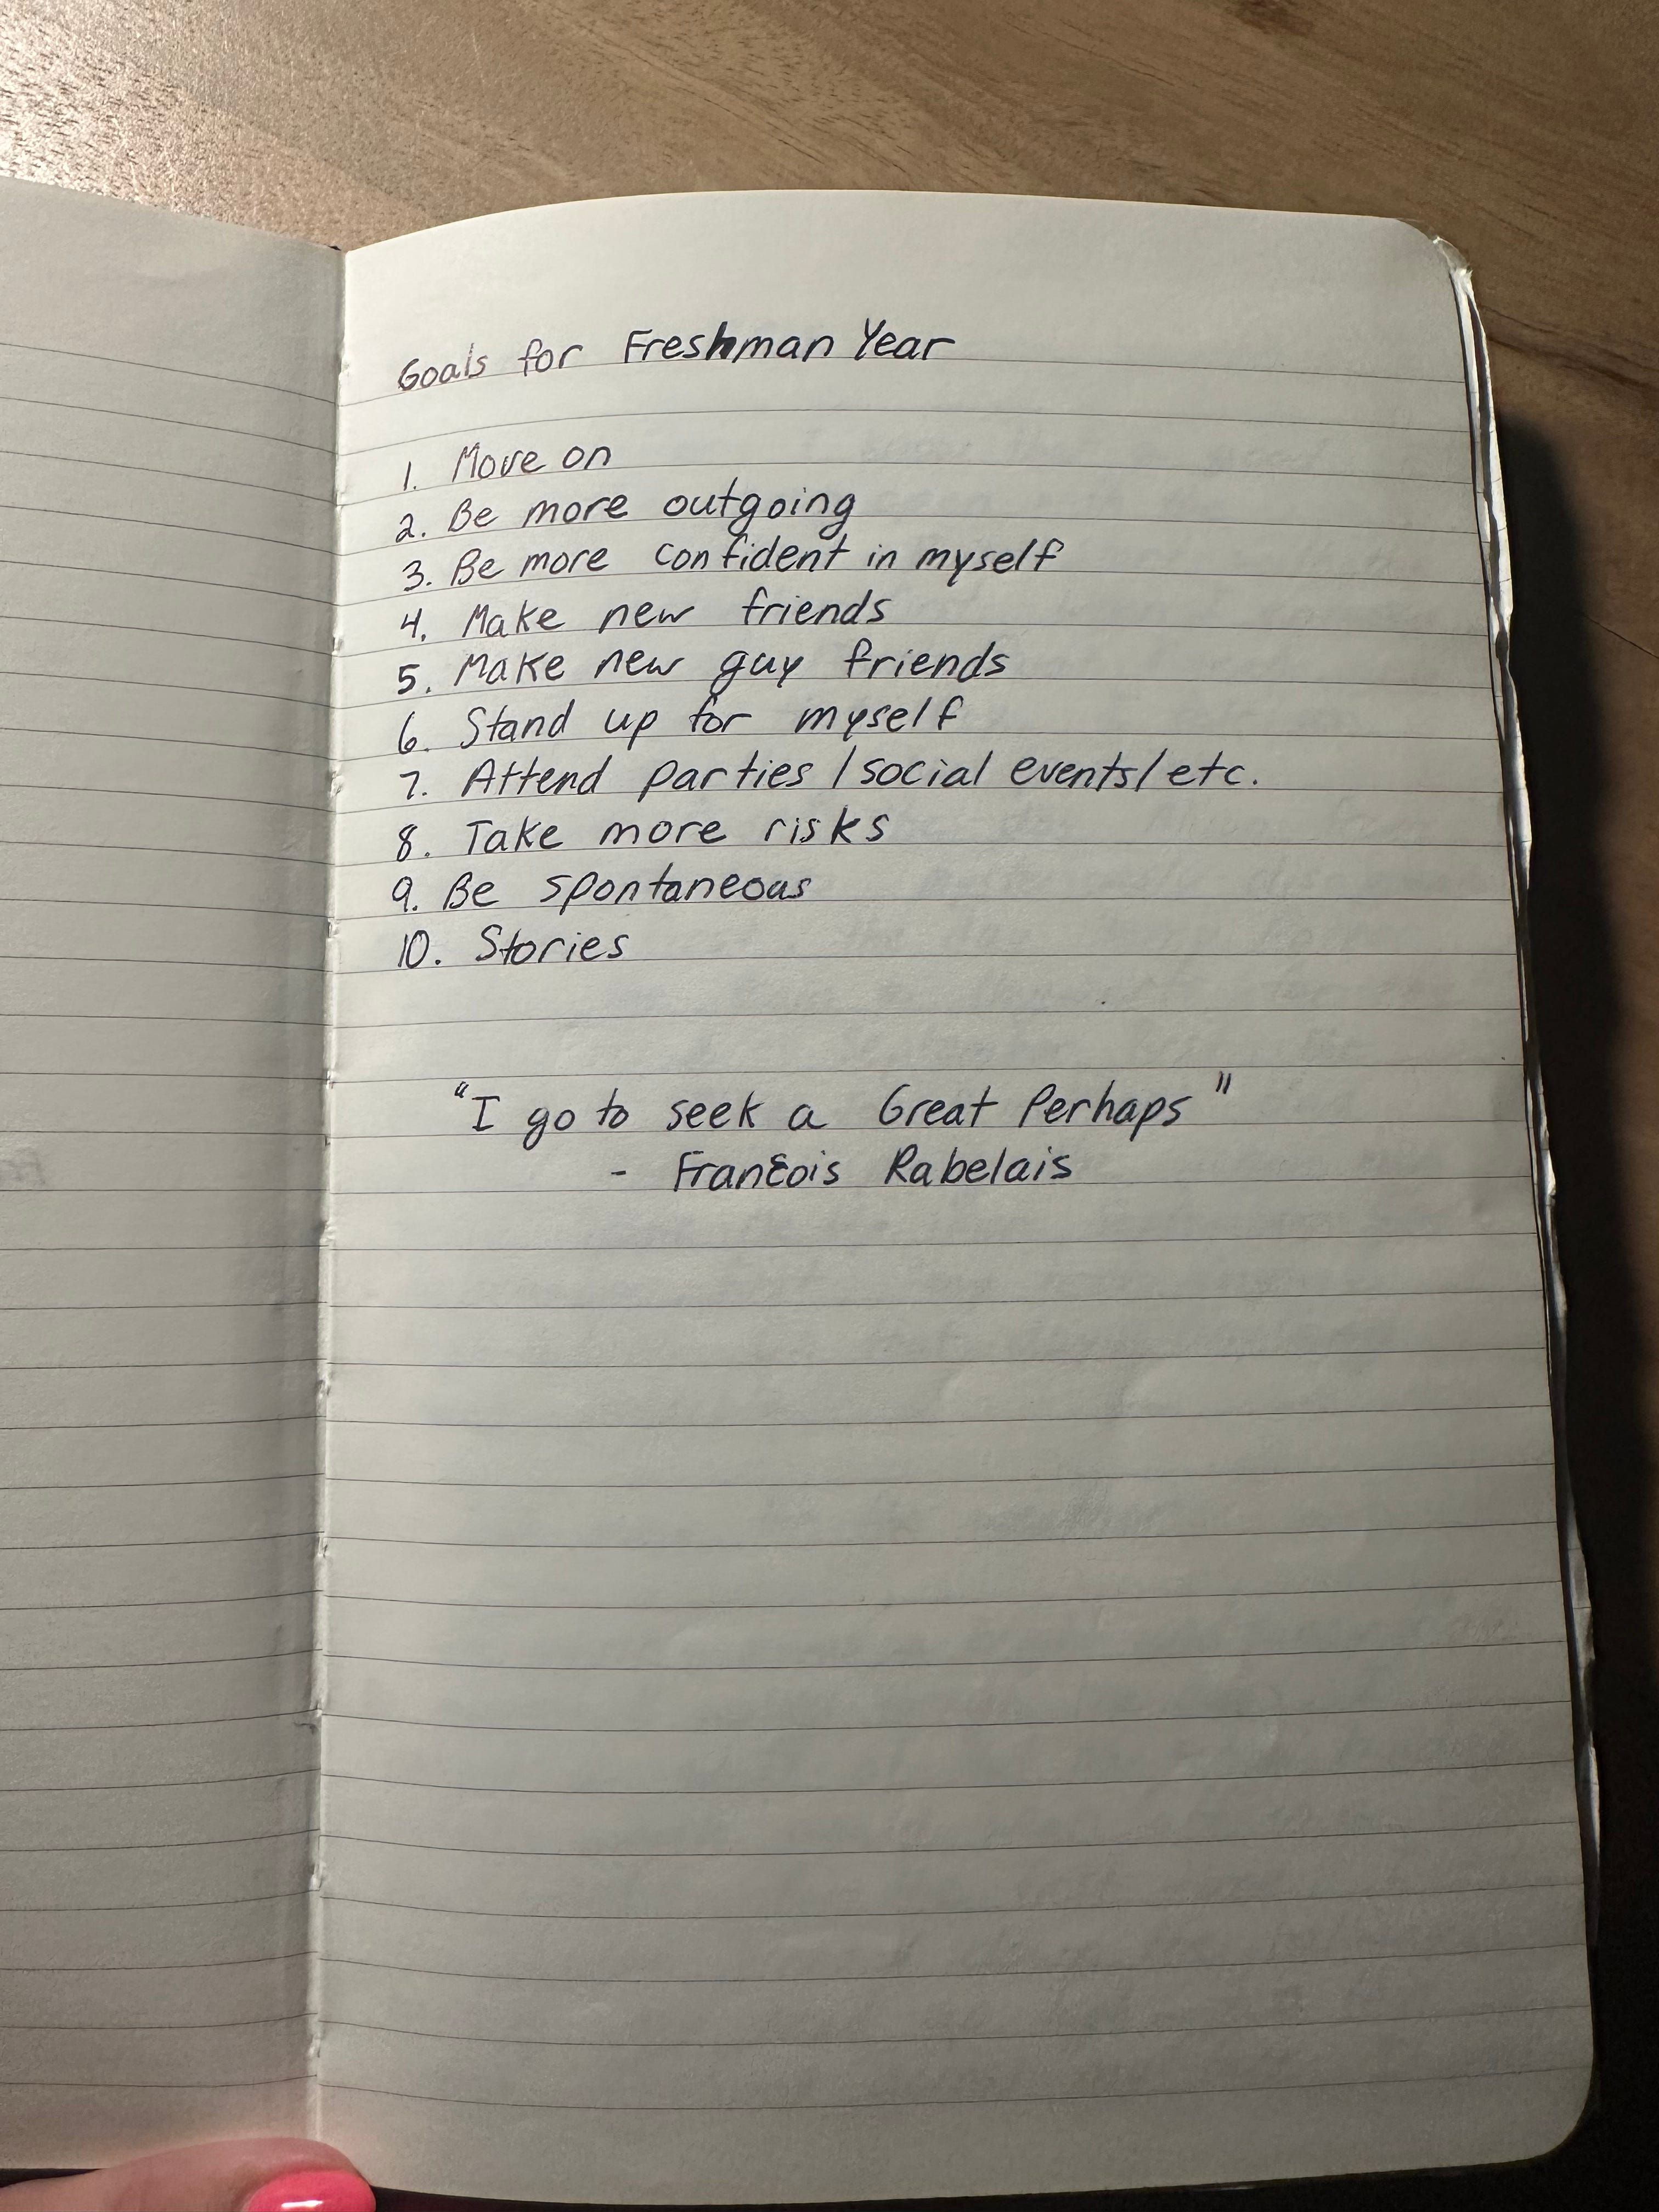 Goals for Freshman Year
1. Move on
2. Be more outgoing
3. Be more confident in myself
4. Make new friends
5. Make new guy friends
6. Stand up for myself
7. Attend parties / social events / etc.
8. Take more risks
9. Be spontaneous
10. Stories
"I go to seek a Great Perhaps"
- Francois Rabelais